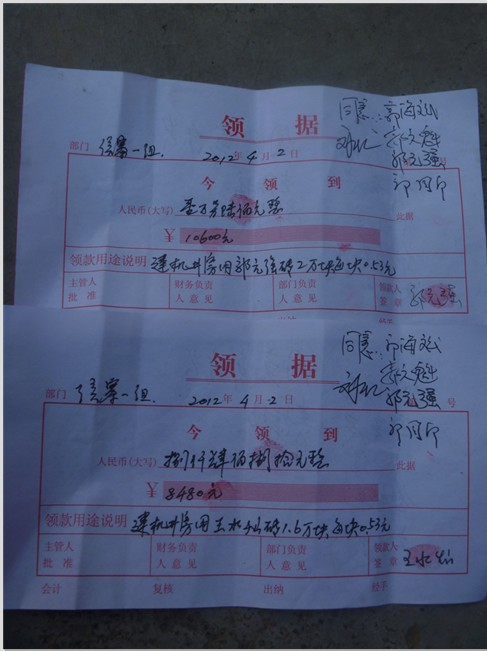 同意:郭海斌
领 据
郭文魁
郭元强
部门 一组 2012年4月2日 号
郭同印
今 领 到
人民币(大写) 壹万零陆佰元整 此据
¥ 10600元
领款用途说明 建机井房用郭元强砖2万块每块0.53元
主管人 财务负责 部门负责 领款人
批准 人意见 人意见 签章 郭元强
同意:郭海斌
领 据
郭文魁
郭元强
部门 一组 2012年4月2日 号
郭同印
今 领 到
人民币(大写) 捌仟肆佰捌拾元整 此据
¥ 8480元
领款用途说明 建机井房用王水仙砖1.6万块每块0.53元
主管人 财务负责 部门负责 领款人
批准 人意见 人意见 签章 王水仙
会计 复核 出纳 经手